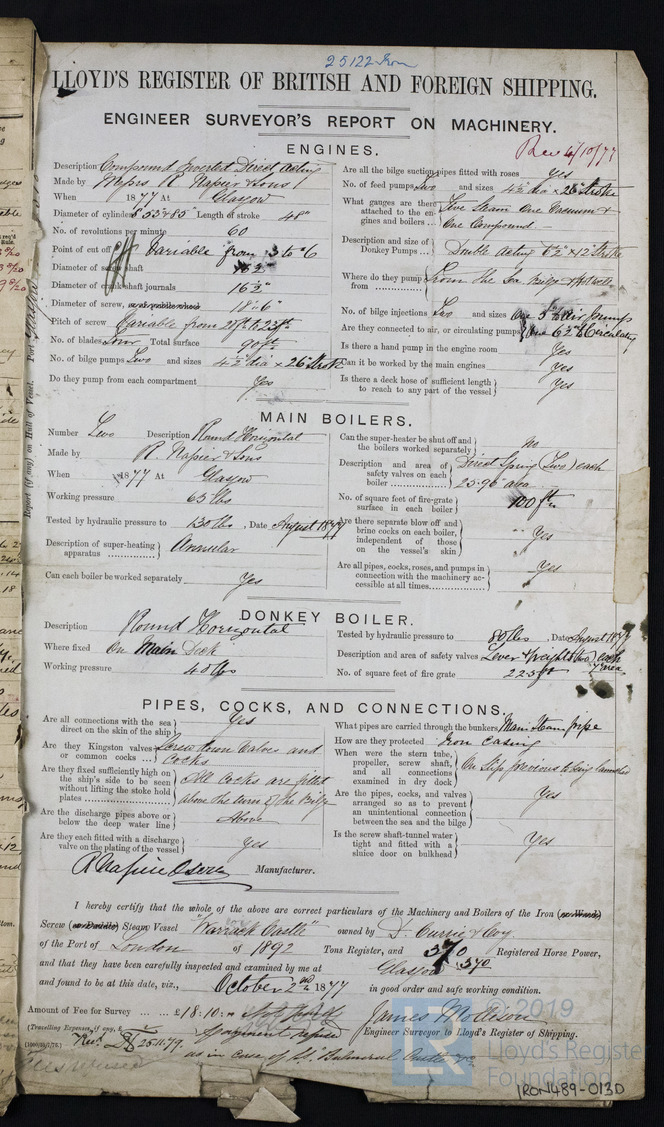 25122 Iron
LLOYD'S REGISTER OF BRITISH AND FOREIGN SHIPPING.
ENGINEER SURVEYOR'S REPORT ON MACHINERY.
Rec 6/10/77
ENGINES.
Description Compound Inverted Direct Acting
Made by Messrs R Napier & Sons
When 1877 At Glasgow
Diameter of cylinders 53 & 85 Length of stroke 48"
No. of revolutions per minute 60
Point of cut off Variable from ·3 to ·6
Diameter of screw shaft 16½"
Diameter of crank shaft journals 16½"
Diameter of screw, or of paddle wheel 18'·6"
Pitch of screw Variable from 21ft to 23ft
No. of blades Four Total surface 90ft
No. of bilge pumps Two and sizes 4½ dia × 26" Stroke
Do they pump from each compartment Yes
Are all the bilge suction pipes fitted with roses Yes
No. of feed pumps Two and sizes 4½ dia × 26" Stroke
What gauges are there attached to the engines and boilers Five Steam One Vacuum & One Compound
Description and size of Donkey Pumps Double Acting 6½" × 12" Stroke
Where do they pump from From the Sea Bilge & Hotwell
No. of bilge injections Two and sizes One 5½ Air Pumps
Are they connected to air, or circulating pumps One 6½" to Circulating
Is there a hand pump in the engine room Yes
Can it be worked by the main engines Yes
Is there a deck hose of sufficient length to reach to any part of the vessel Yes
MAIN BOILERS.
Number Two Description Round Horizontal
Made by R. Napier & Sons
When 1877 At Glasgow
Working pressure 65 lbs
Tested by hydraulic pressure to 130 lbs, Date August 1877
Description of super-heating apparatus Annular
Can each boiler be worked separately Yes
Can the super-heater be shut off and the boilers worked separately No
Description and area of safety valves on each boiler Direct Spring (Two) each 25·96 area
No. of square feet of fire-grate surface in each boiler 100 ft
Are there separate blow off and brine cocks on each boiler, independent of those on the vessel's skin Yes
Are all pipes, cocks, roses, and pumps in connection with the machinery accessible at all times Yes
DONKEY BOILER.
Description Round Horizontal
Where fixed On Main Deck
Working pressure 40 lbs
Tested by hydraulic pressure to 80 lbs, Date August 1877
Description and area of safety valves Lever & weights two each
No. of square feet of fire grate 22·5 ft
PIPES, COCKS, AND CONNECTIONS.
Are all connections with the sea direct on the skin of the ship Yes
Are they Kingston valves or common cocks Screw down Valves and Cocks
Are they fixed sufficiently high on the ship's side to be seen without lifting the stoke hold plates All Cocks are fitted above the turn of the Bilge
Are the discharge pipes above or below the deep water line Above
Are they each fitted with a discharge valve on the plating of the vessel Yes
What pipes are carried through the bunkers Main Steam pipe
How are they protected Iron Casing
When were the stern tube, propeller, screw shaft, and all connections examined in dry dock On Slip previous to being launched
Are the pipes, cocks, and valves arranged so as to prevent an unintentional connection between the sea and the bilge Yes
Is the screw shaft-tunnel water tight and fitted with a sluice door on bulkhead Yes
R Napier & Sons Manufacturer.
I hereby certify that the whole of the above are correct particulars of the Machinery and Boilers of the Iron (or Wood)
Screw (or Paddle) Steam Vessel "Warwick Castle" owned by D. Currie & Coy.
of the Port of London of 1892 Tons Register, and 370 Registered Horse Power,
and that they have been carefully inspected and examined by me at Glasgow 370
and found to be at this date, viz., October 2nd 1877 in good order and safe working condition.
Amount of Fee for Survey £18:10:" Not paid
James Mollison
(Travelling Expenses, if any, £ payment refused
Engineer Surveyor to Lloyd's Register of Shipping.
25.11.79. as in case of St. Balmoral Castle &c
© 2019
LR
Lloyd's Register Foundation
IRON489-013D